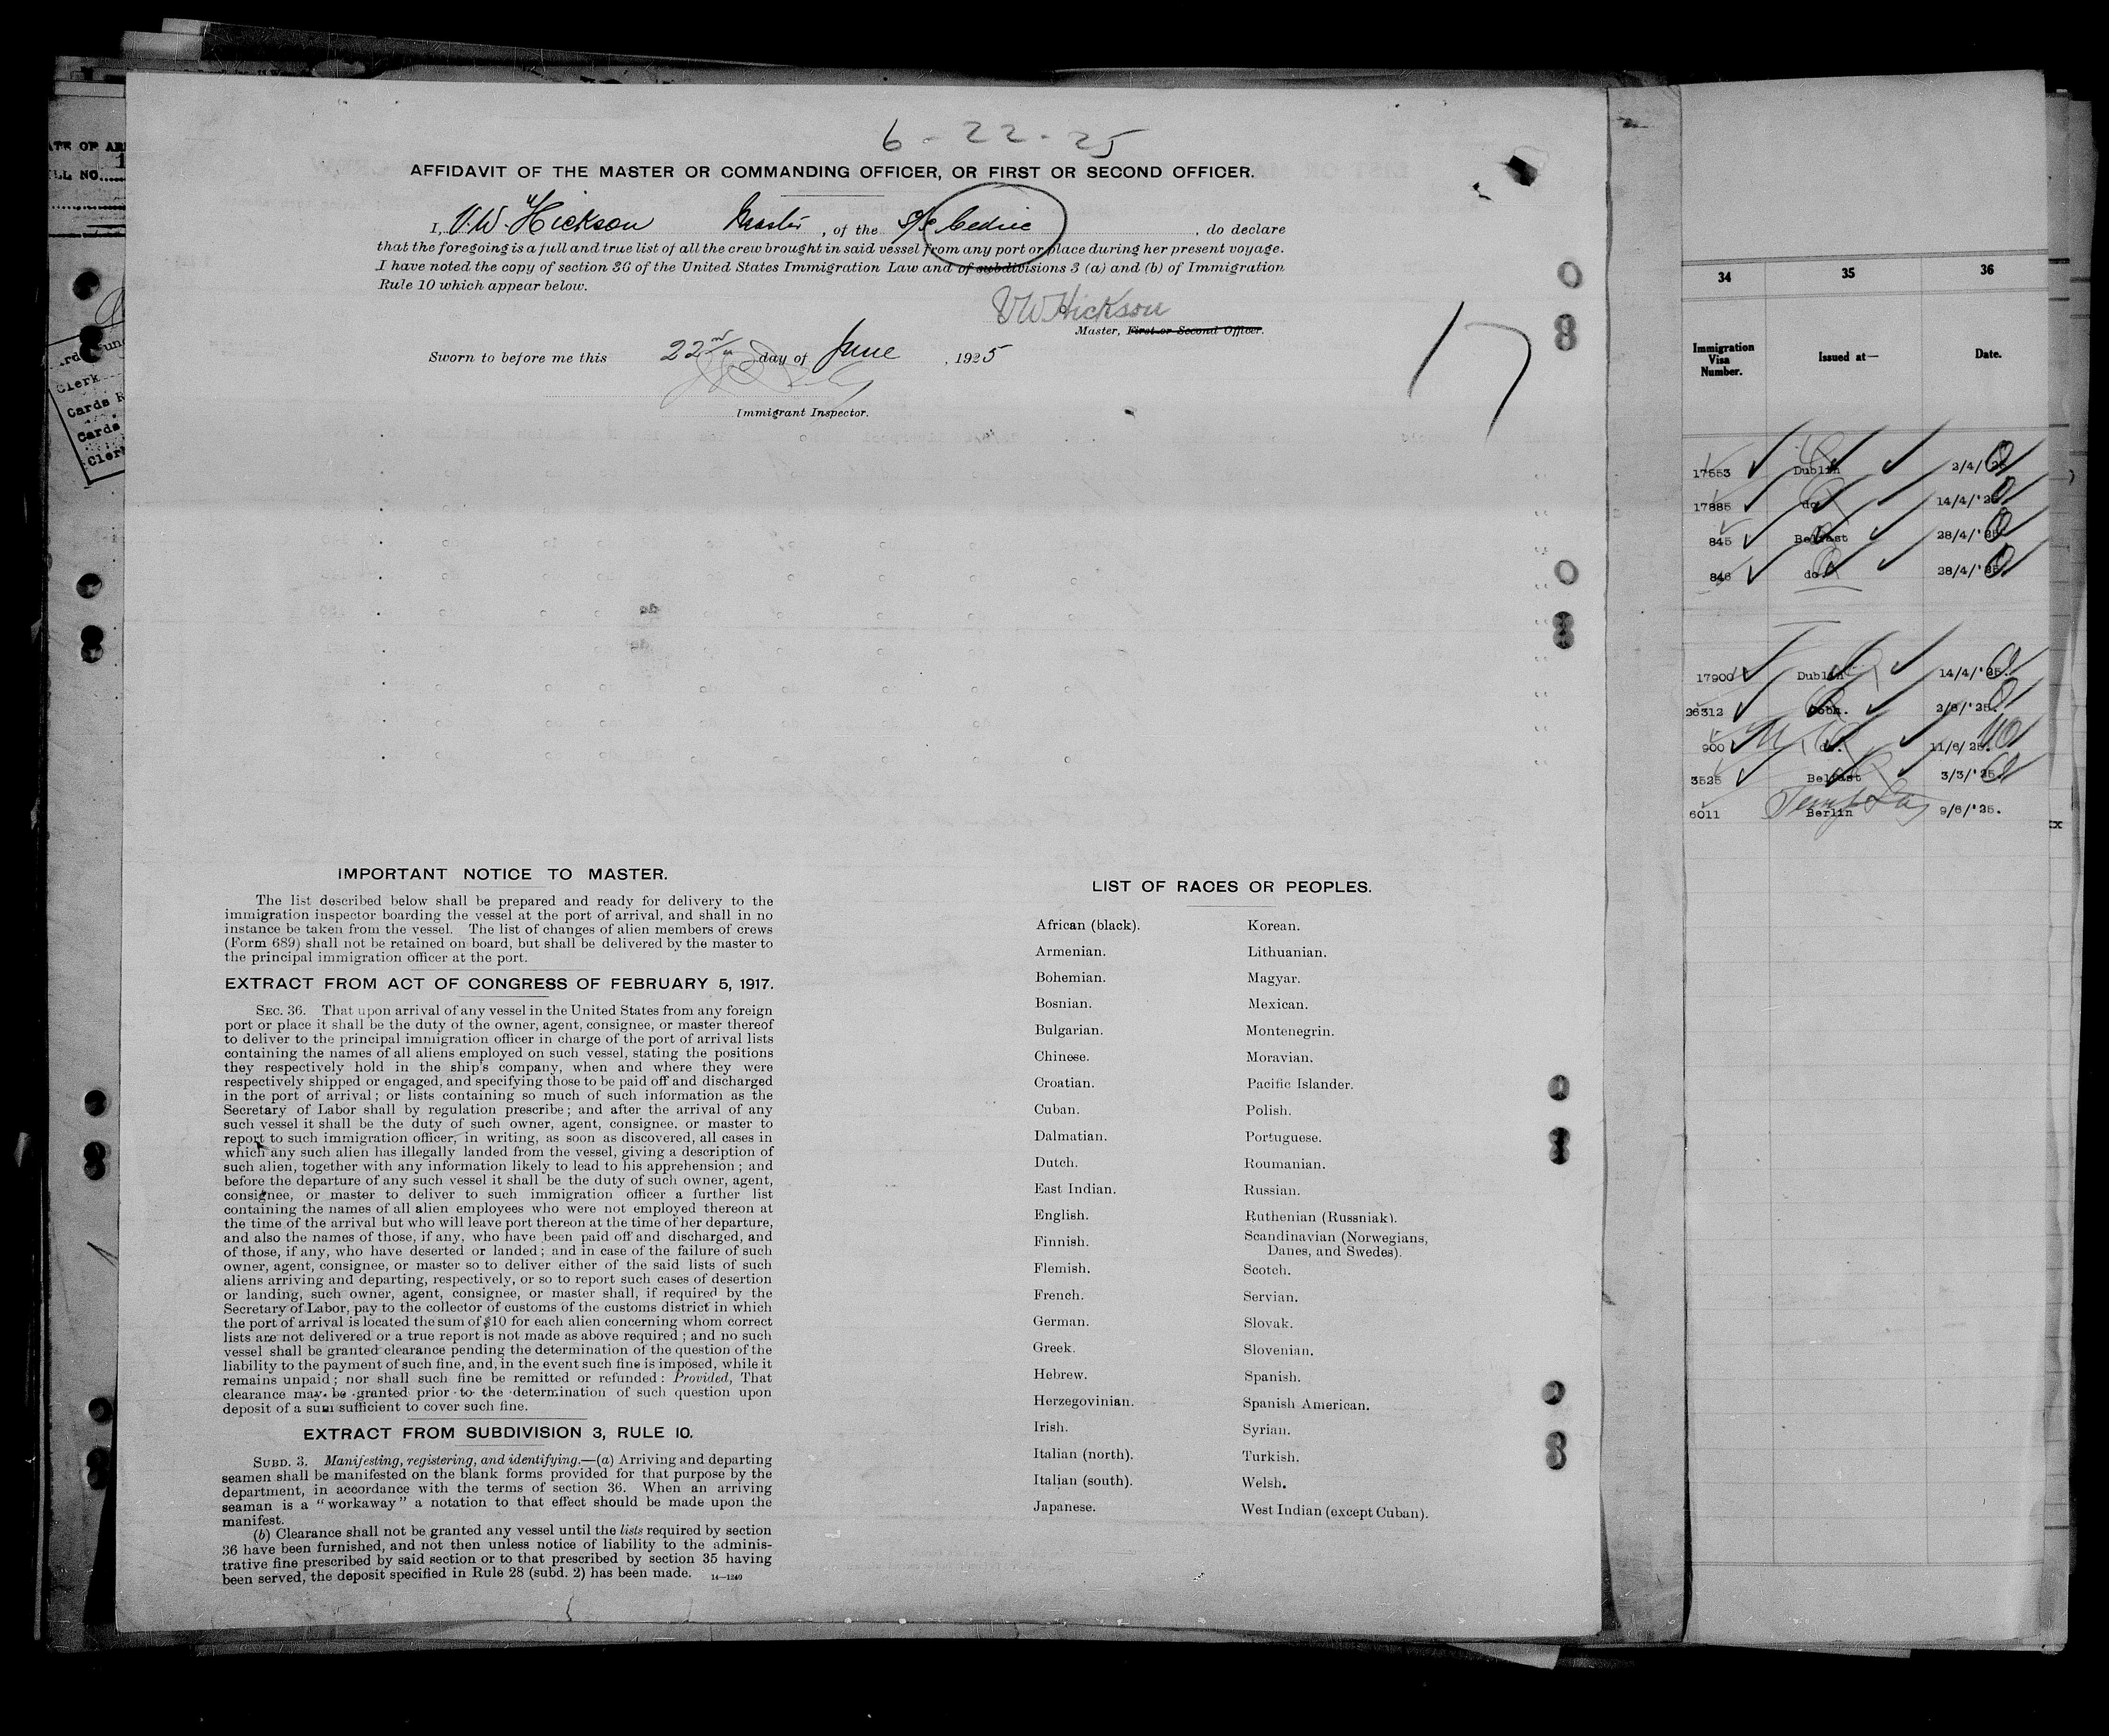 6-22-25
AFFIDAVIT OF THE MASTER OR COMMANDING OFFICER, OR FIRST OR SECOND OFFICER.
I, V.W. Hickson Master, of the S/S Cedric, do declare
that the foregoing is a full and true list of all the crew brought in said vessel from any port or place during her present voyage.
I have noted the copy of section 36 of the United States Immigration Law and of subdivisions 3 (a) and (b) of Immigration
Rule 10 which appear below.
VW Hickson
Master, First or Second Officer.
Sworn to before me this 22nd day of June, 1925
Immigrant Inspector.
17
IMPORTANT NOTICE TO MASTER.
The list described below shall be prepared and ready for delivery to the
immigration inspector boarding the vessel at the port of arrival, and shall in no
instance be taken from the vessel. The list of changes of alien members of crews
(Form 689) shall not be retained on board, but shall be delivered by the master to
the principal immigration officer at the port.
EXTRACT FROM ACT OF CONGRESS OF FEBRUARY 5, 1917.
SEC. 36. That upon arrival of any vessel in the United States from any foreign
port or place it shall be the duty of the owner, agent, consignee, or master thereof
to deliver to the principal immigration officer in charge of the port of arrival lists
containing the names of all aliens employed on such vessel, stating the positions
they respectively hold in the ship's company, when and where they were
respectively shipped or engaged, and specifying those to be paid off and discharged
in the port of arrival; or lists containing so much of such information as the
Secretary of Labor shall by regulation prescribe; and after the arrival of any
such vessel it shall be the duty of such owner, agent, consignee, or master to
report to such immigration officer, in writing, as soon as discovered, all cases in
which any such alien has illegally landed from the vessel, giving a description of
such alien, together with any information likely to lead to his apprehension; and
before the departure of any such vessel it shall be the duty of such owner, agent,
consignee, or master to deliver to such immigration officer a further list
containing the names of all alien employees who were not employed thereon at
the time of the arrival but who will leave port thereon at the time of her departure,
and also the names of those, if any, who have been paid off and discharged, and
of those, if any, who have deserted or landed; and in case of the failure of such
owner, agent, consignee, or master so to deliver either of the said lists of such
aliens arriving and departing, respectively, or so to report such cases of desertion
or landing, such owner, agent, consignee, or master shall, if required by the
Secretary of Labor, pay to the collector of customs of the customs district in which
the port of arrival is located the sum of $10 for each alien concerning whom correct
lists are not delivered or a true report is not made as above required; and no such
vessel shall be granted clearance pending the determination of the question of the
liability to the payment of such fine, and, in the event such fine is imposed, while it
remains unpaid; nor shall such fine be remitted or refunded: Provided, That
clearance may be granted prior to the determination of such question upon
deposit of a sum sufficient to cover such fine.
EXTRACT FROM SUBDIVISION 3, RULE 10.
SUBD. 3. Manifesting, registering, and identifying.—(a) Arriving and departing
seamen shall be manifested on the blank forms provided for that purpose by the
department, in accordance with the terms of section 36. When an arriving
seaman is a "workaway" a notation to that effect should be made upon the
manifest.
(b) Clearance shall not be granted any vessel until the lists required by section
36 have been furnished, and not then unless notice of liability to the adminis-
trative fine prescribed by said section or to that prescribed by section 35 having
been served, the deposit specified in Rule 28 (subd. 2) has been made. 14—1240
LIST OF RACES OR PEOPLES.
African (black). Korean.
Armenian. Lithuanian.
Bohemian. Magyar.
Bosnian. Mexican.
Bulgarian. Montenegrin.
Chinese. Moravian.
Croatian. Pacific Islander.
Cuban. Polish.
Dalmatian. Portuguese.
Dutch. Roumanian.
East Indian. Russian.
English. Ruthenian (Russniak).
Finnish. Scandinavian (Norwegians,
Danes, and Swedes).
Flemish. Scotch.
French. Servian.
German. Slovak.
Greek. Slovenian.
Hebrew. Spanish.
Herzegovinian. Spanish American.
Irish. Syrian.
Italian (north). Turkish.
Italian (south). Welsh.
Japanese. West Indian (except Cuban).
34 35 36
Immigration
Visa
Number.
Issued at—
Date.
17553 Dublin 2/4/
17885 do 14/4/'25
845 Belfast 28/4/'25
846 do. 28/4/'25
17900 Dublin 14/4/'25.
26312 Cobh. 2/6/'25.
900 do. 11/6/25.
3525 Belfast 3/3/'25
6011 Berlin 9/6/'25.
LL NO.
Clerk
Cards
Cards
Clerk